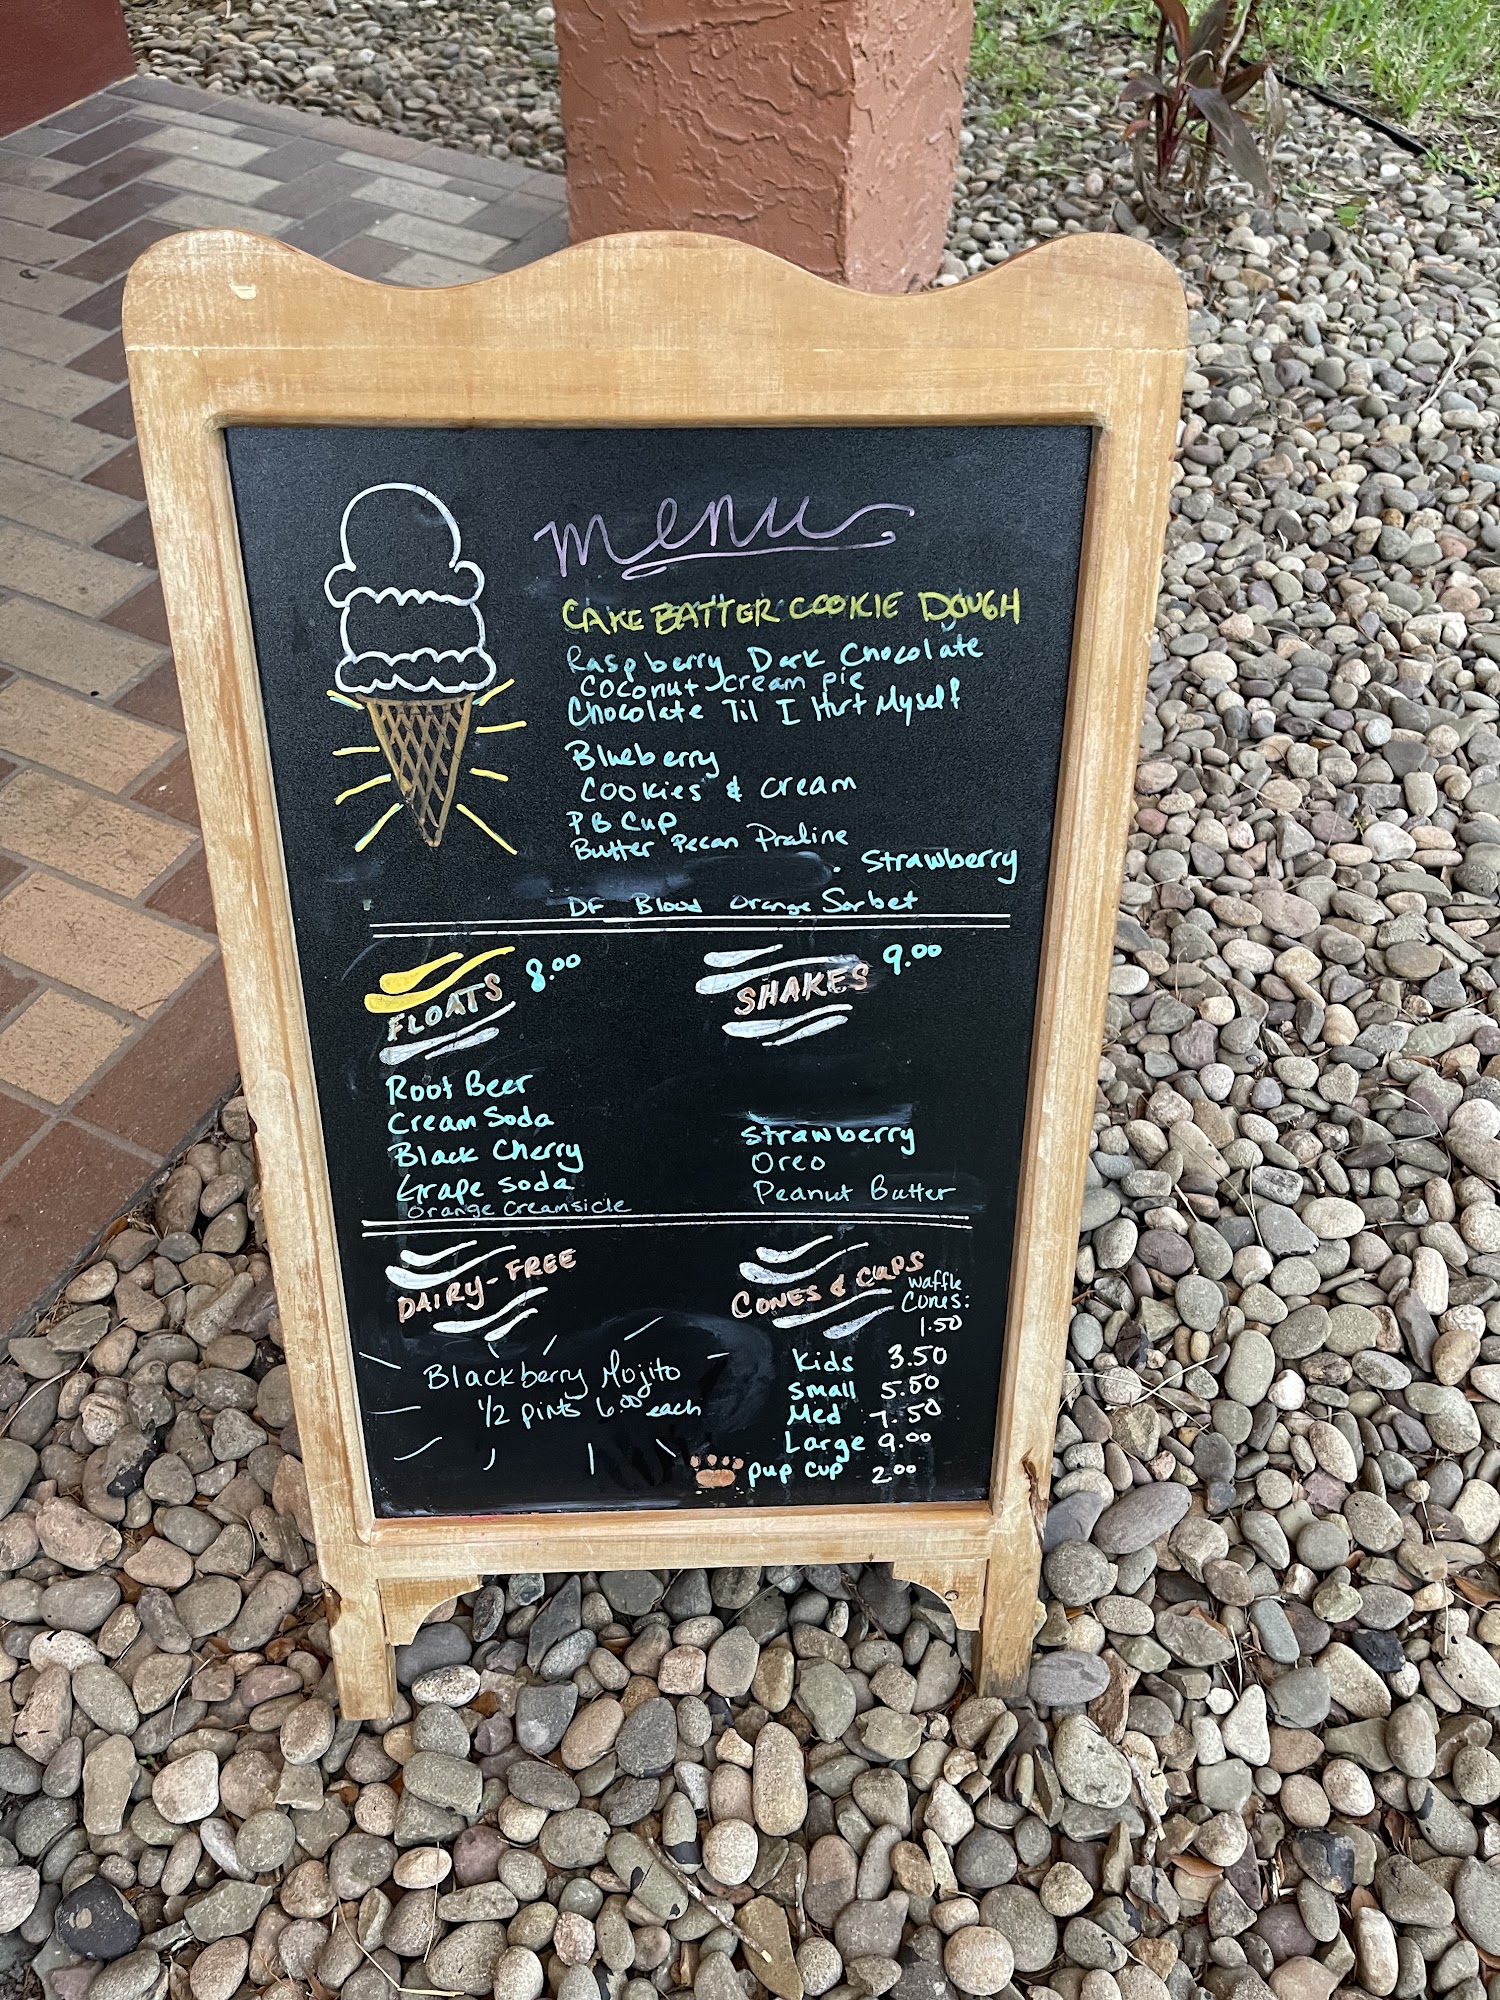 menu
CAKE BATTER COOKIE DOUGH
Raspberry Dark Chocolate
Coconut cream pie
Chocolate Til I Hurt Myself
Blueberry
Cookies & Cream
PB Cup
Butter Pecan Praline
. Strawberry
DF Blood Orange Sorbet
FLOATS 8.00
Root Beer
Cream Soda
Black Cherry
Grape soda
Orange Creamsicle
SHAKES 9.00
Strawberry
Oreo
Peanut Butter
DAIRY-FREE
Blackberry Mojito
1/2 pints 6.00 each
CONES & CUPS
Waffle
Cones:
1.50
Kids 3.50
Small 5.50
Med 7.50
Large 9.00
pup cup 2.00